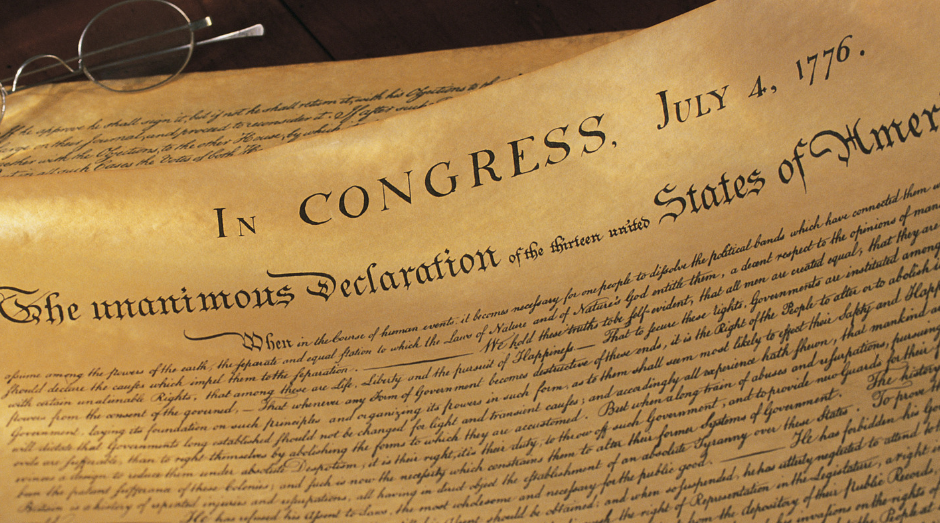 If he approve he shall sign it, but if not he shall return it, with his Objections to
on their Journal, and proceed to reconsider it. If after such
with the Objections, to the other House, by which
such Cases the Votes of both
IN CONGRESS, JULY 4, 1776.
The unanimous Declaration of the thirteen united States of Amer
When in the course of human events, it becomes necessary for one people to dissolve the political bands which have connected them
assume among the powers of the earth, the separate and equal station to which the Laws of Nature and of Nature's God entitle them, a decent respect to the opinions of man
should declare the causes which impel them to the separation. We hold these truths to be self-evident, that all men are created equal, that they are
with certain unalienable Rights, that among these are Life, Liberty and the pursuit of Happiness— That to secure these rights, Governments are instituted among
powers from the consent of the governed,— That whenever any Form of Government becomes destructive of these ends, it is the Right of the People to alter or to abolish
Government, laying its foundation on such principles and organizing its powers in such form, as to them shall seem most likely to effect their Safety and Happ
will dictate that Governments long established should not be changed for light and transient causes; and accordingly all experience hath shewn, that mankind
evils are sufferable, than to right themselves by abolishing the forms to which they are accustomed. But when a long train of abuses and usurpations, pursuing
evinces a design to reduce them under absolute Despotism, it is their right, it is their duty, to throw off such Government, and to provide new Guards for their
been the patient sufferance of these Colonies; and such is now the necessity which constrains them to alter their former Systems of Government. The history
Britain is a history of repeated injuries and usurpations, all having in direct object the establishment of an absolute Tyranny over these States. To prove
He has refused his Assent to Laws, the most wholesome and necessary for the public good. He has forbidden his
should be obtained; and when so suspended, he has utterly neglected to attend to
the right of Representation in the Legislature, a right
from the depository of their Public Records,
invasions on the rights of